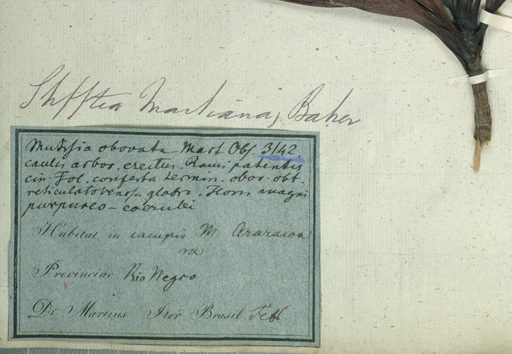 Stifftia Martiana, Baker
Mutisia obovata Mart Obs. 3142
caulis arbor. erectus. Rami patentis
cin. Fol. conferta ternis. obov. obt.
reticulatovenosa glabra. Flores magni
purpureo-coerulei
Habitat in campis M. Araracoa
ra
Provinciae Rio Negro
De Martius Iter Brasil. Febr